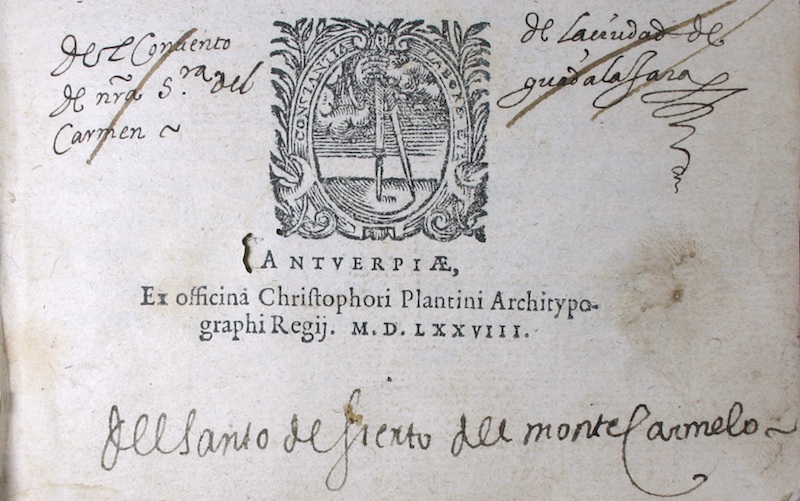 del Conuento
de nr̃a S.ra del
Carmen ~
de la ciudad de
guadalaxara
CONSTANTIA ET LABORE
ANTVERPIÆ,
Ex officinâ Chriſtophori Plantini Architypo-
graphi Regij. M. D. LXXVIII.
del santo desierto del monte Carmelo ~